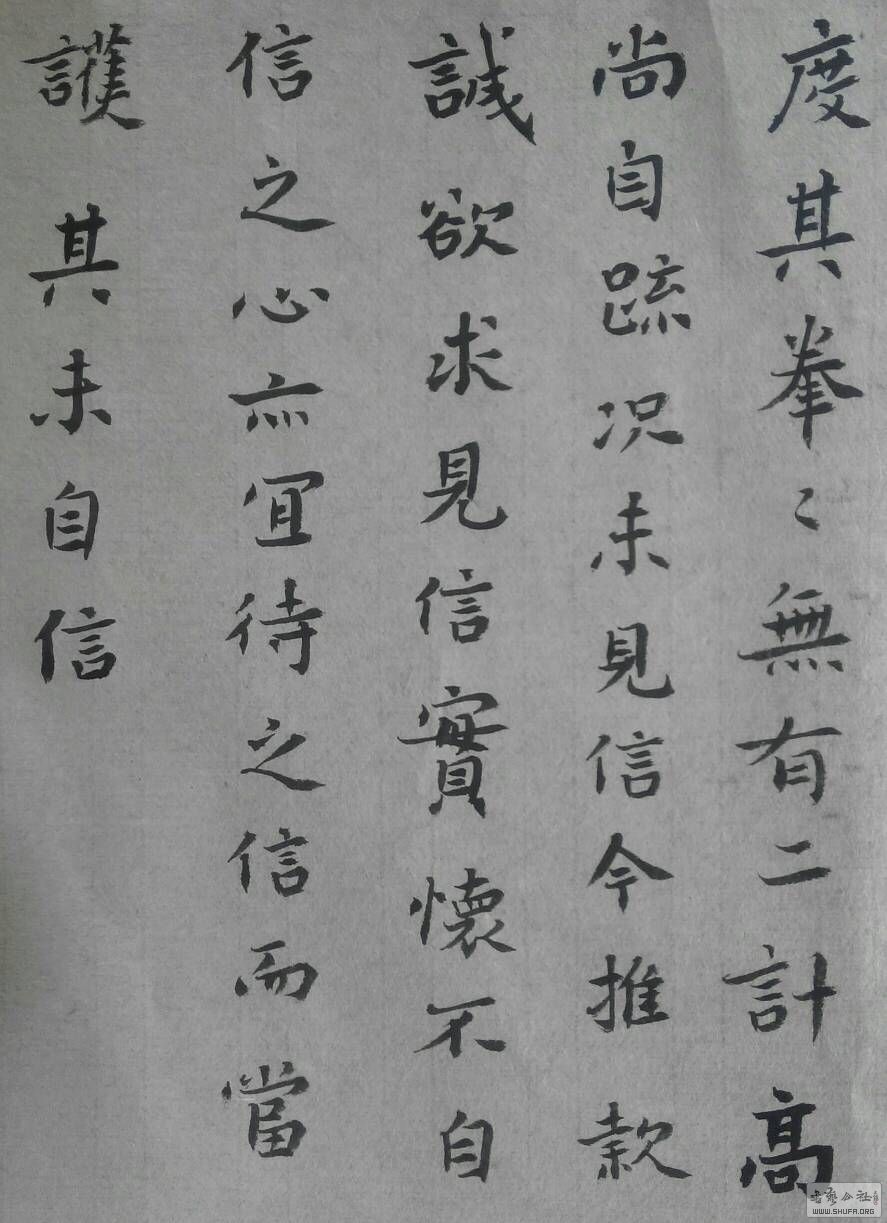 度其拳〻無有二計高
尚自疏况未見信今推款
誠欲求見信實懷不自
信之心亦宜待之信而當
護其未自信
WWW.SHUFA.ORG